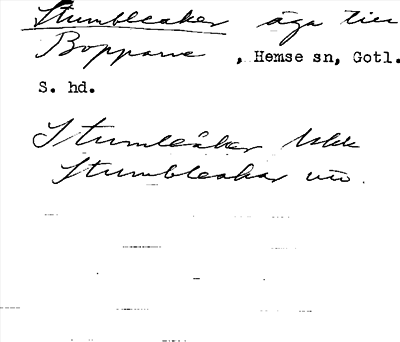 Stumbleaker äga till
Boppane, Hemse sn, Gotl.
S. hd.
Stumleåker Ukk
Stumbleakar utt.